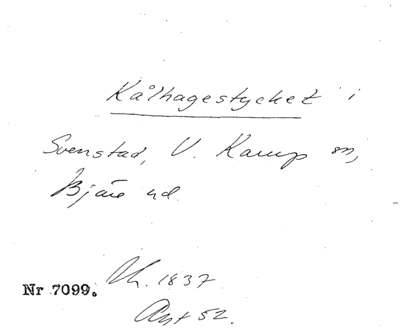 Kålhagestycket i
Svenstad, V. Karup sn,
Bjäre hd.
Nr 7099. Uh. 1837
Akt 52.